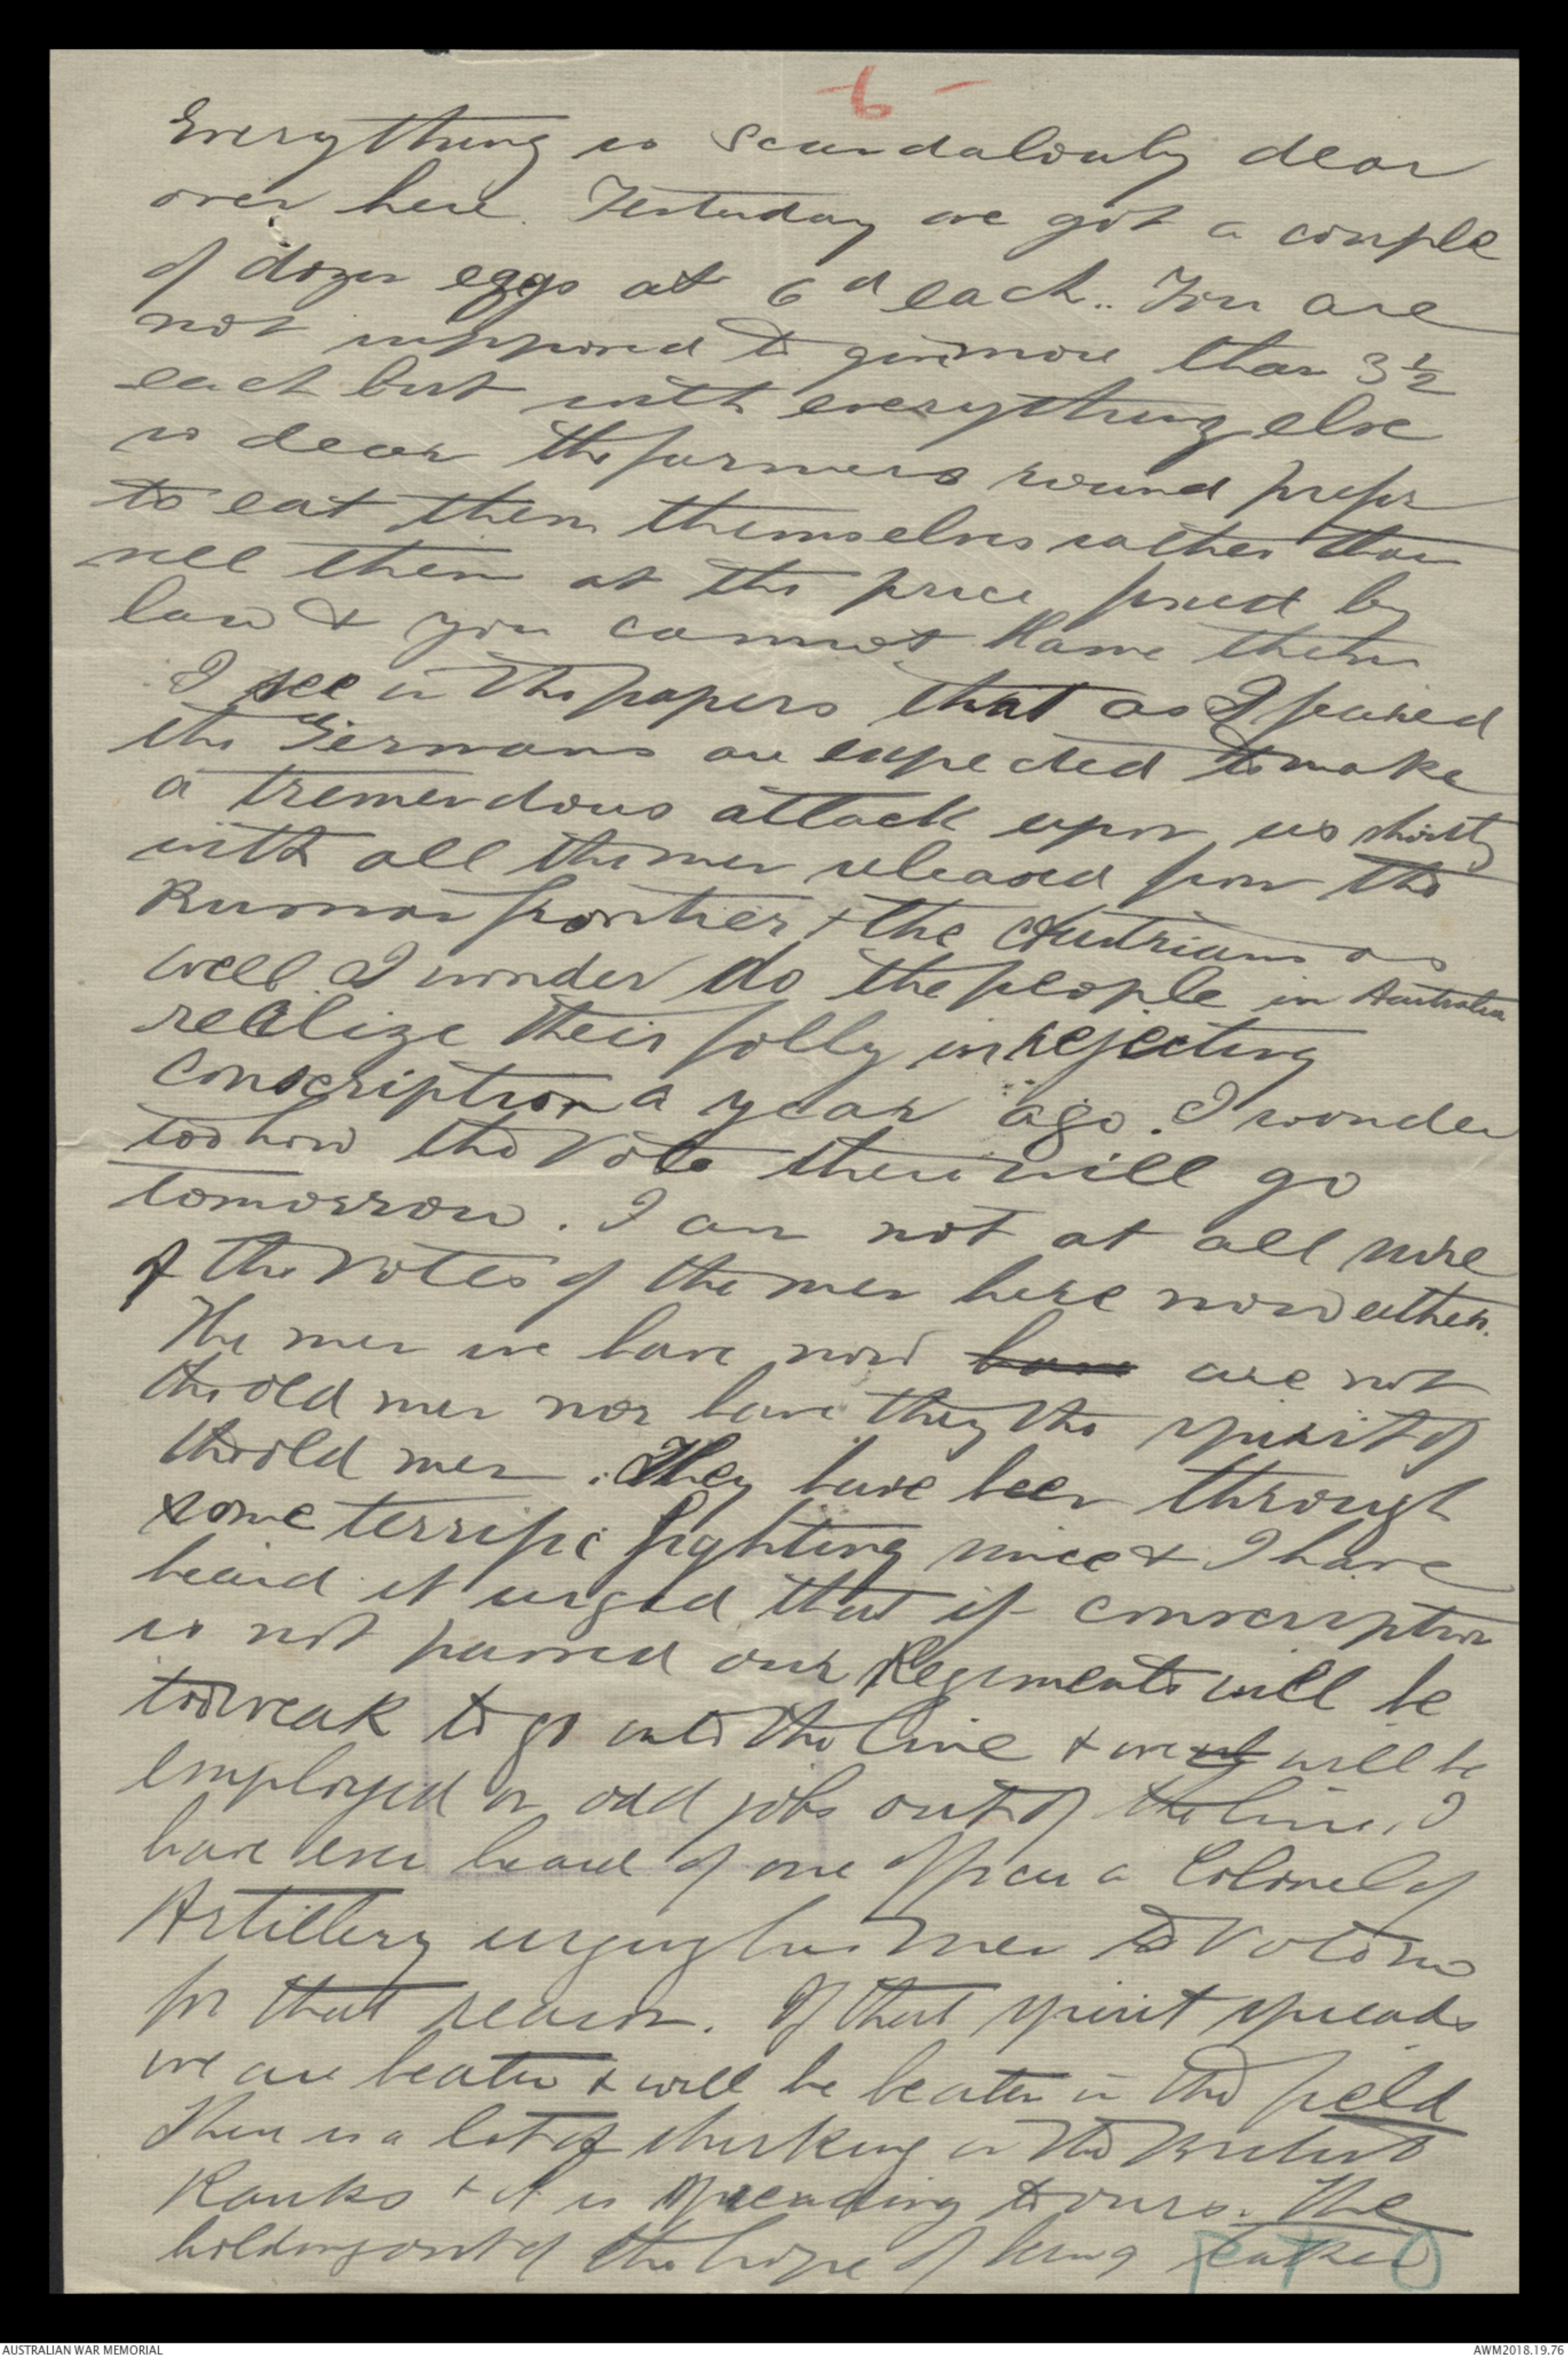 -6-
Everything is scandalously dear
over here. Yesterday we got a couple
of dozen eggs at 6d each.. You are
not supposed to give more than 3½
each but with everything else
so dear the farmers round prefer
to eat them themselves rather than
sell them at the price fixed by
law & you cannot blame them
I see in the papers that as I feared
the Germans are expected to make
a tremendous attack upon us shortly
with all the men released from the
Russian frontier & the Austrians as
well. I wonder do the people in Australia
realize their folly in rejecting
conscription a year ago. I wonder
too how the Vote there will go
tomorrow. I am not at all sure
of the votes of the men here now either.
The men we have now have are not
the old men nor have they the spirit of
the old men. They have been through
some terrific fighting since & I have
heard it urged that if conscription
is not passed our Regiments will be
too weak to go into the line & we will be
employed on odd jobs out of the line. I
have even heard of one officer a Colonel of
Artillery urging his men to Vote no
for that reason. If that spirit spreads
we are beaten & will be beaten in the field
There is a lot of shirking in the British
Ranks & it is spreading to ours. The
holding out of the hope of being taken
P T O
AUSTRALIAN WAR MEMORIAL
AWM2018.19.76